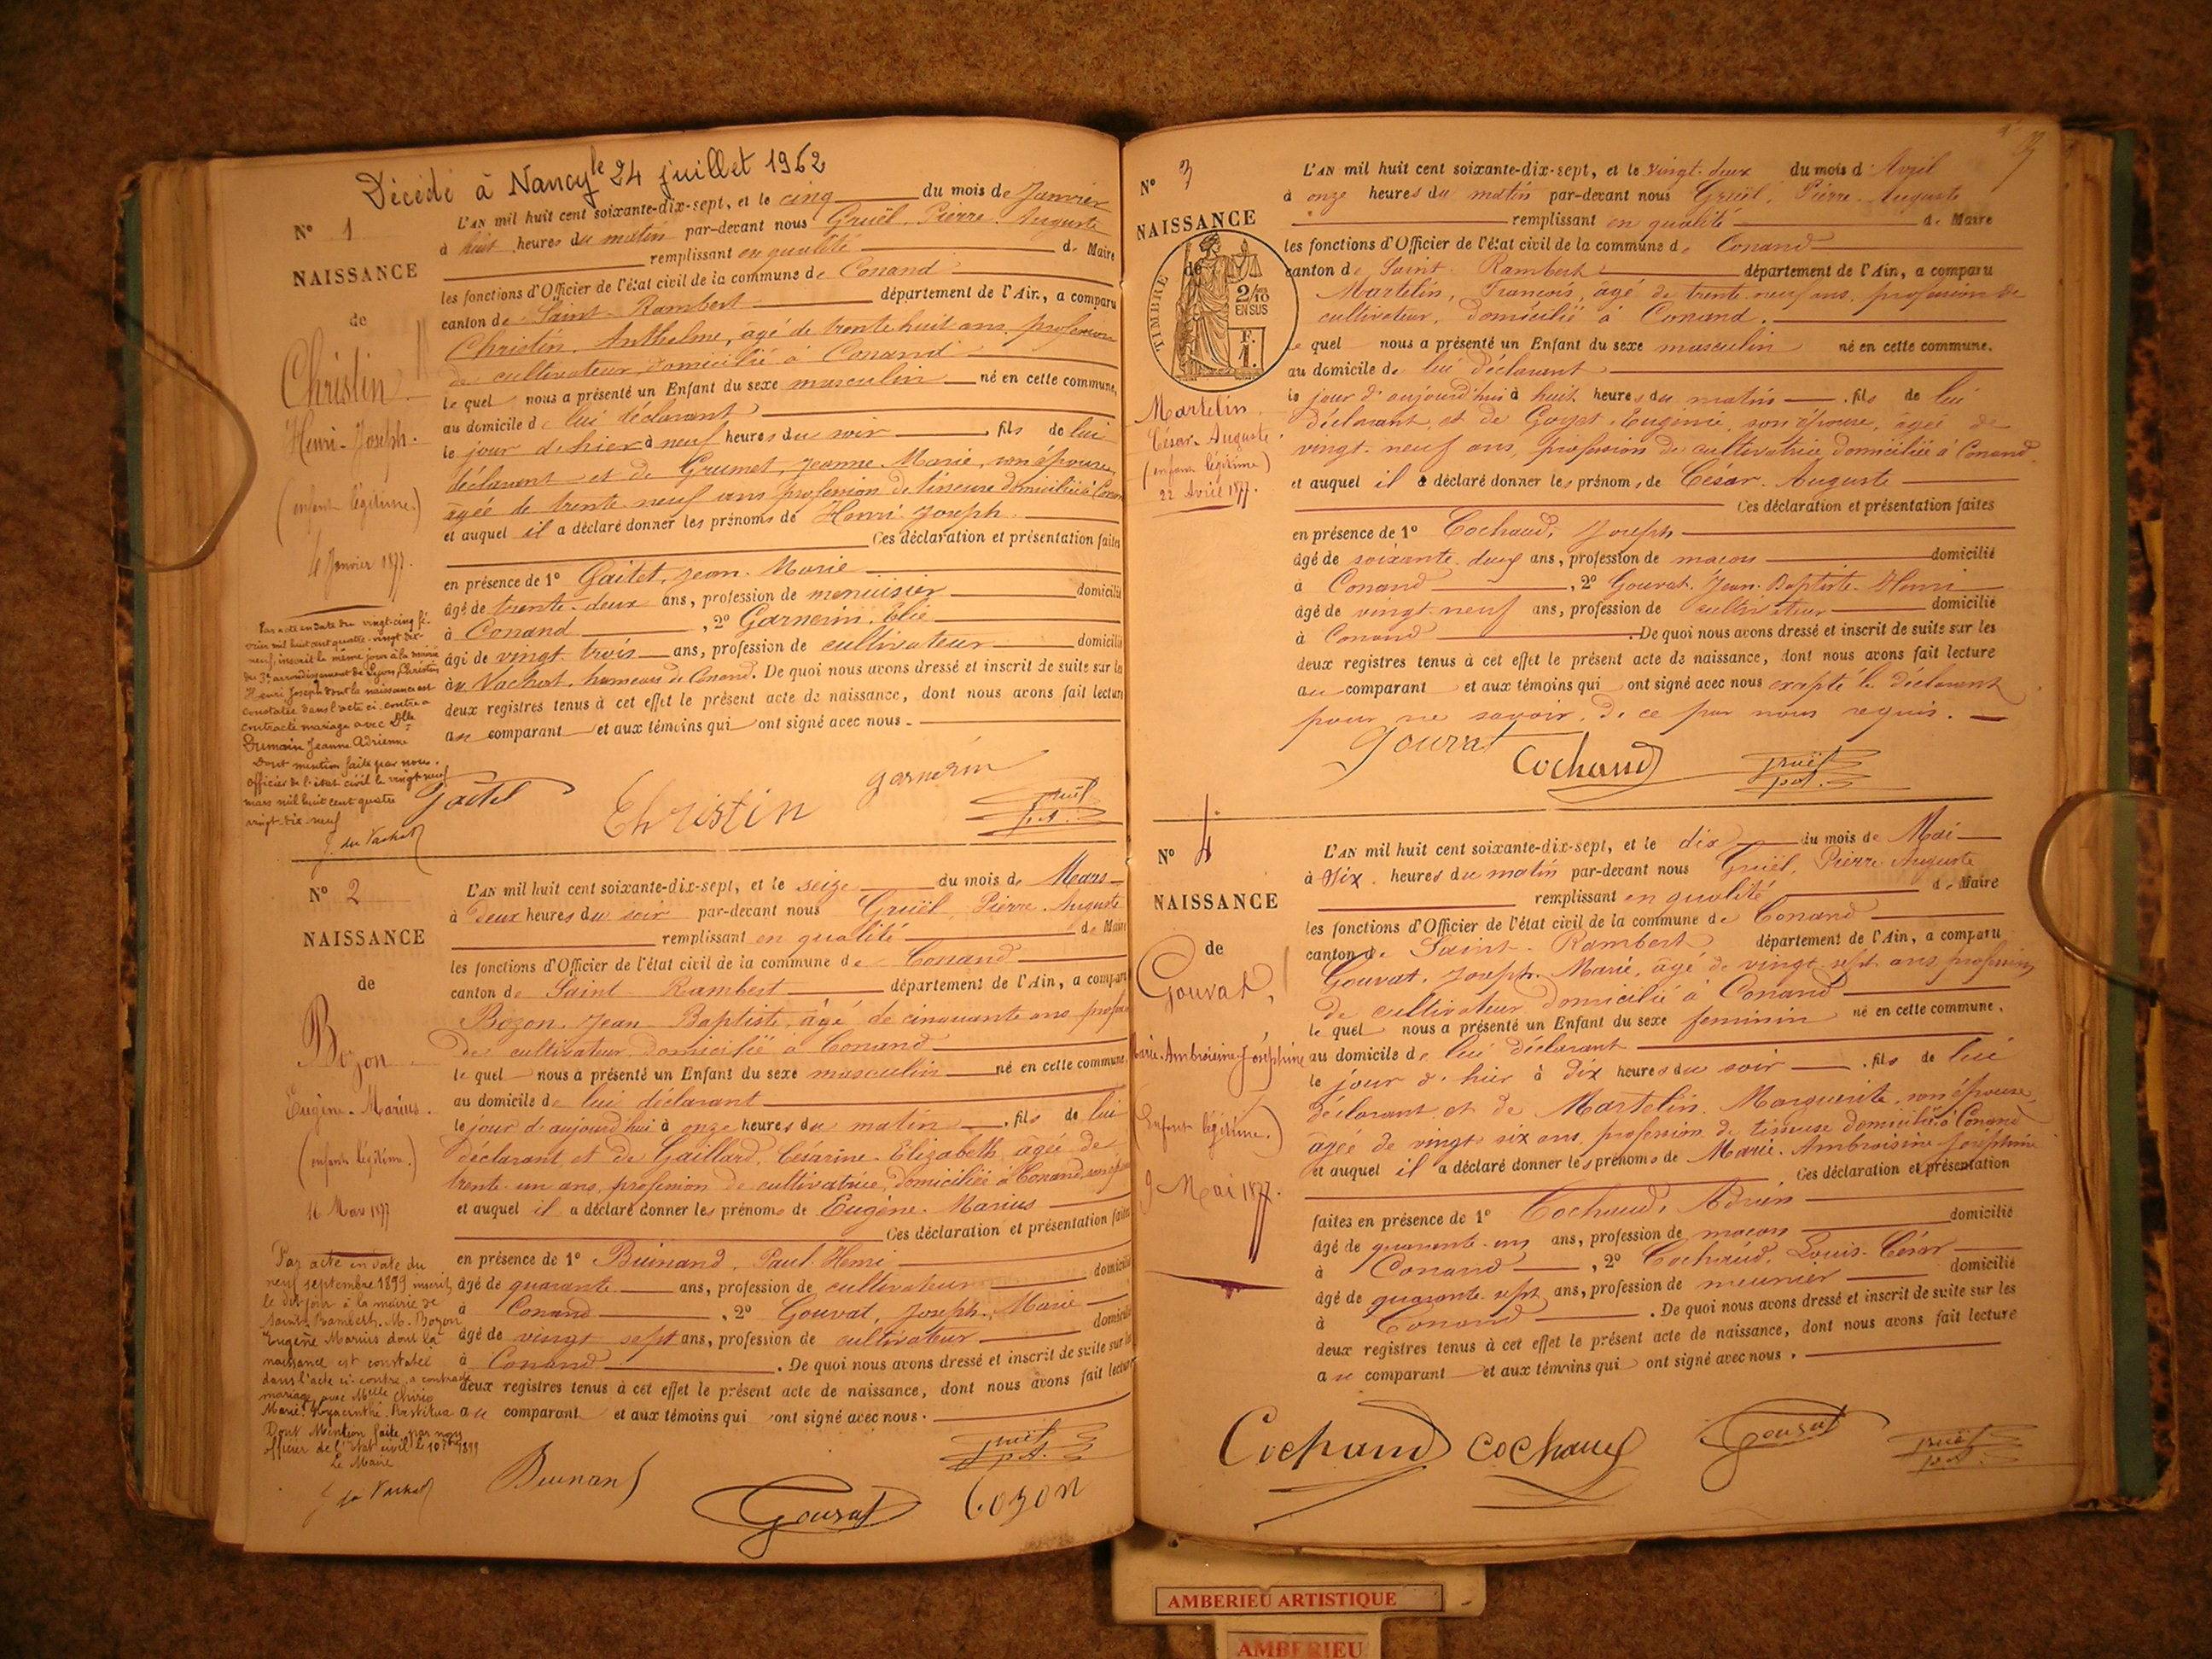 Décédé à Nancy le 24 juillet 1962
N° 1
NAISSANCE
de
Christin
Henri-Joseph.
(enfant légitime.)
4 Janvier 1877.
Par acte en date du vingt-cinq fé-
vrier mil huit cent quatre-vingt dix-
neuf, inscrit le même jour à la mairie
du 3e arrondissement de Lyon, Christin
Henri Joseph dont la naissance est
constatée dans l'acte ci-contre a
contracté mariage avec Dlle
Dumain Jeanne Adrienne
Dont mention faite par nous,
officier de l'état civil le vingt neuf
mars mil huit cent quatre
vingt-dix-neuf
J. du Vachat
L'AN mil huit cent soixante-dix-sept, et le cinq du mois de Janvier
à huit heures du matin par-devant nous Gruël, Pierre Auguste
remplissant en qualité de Maire
les fonctions d'Officier de l'état civil de la commune de Conand
canton de Saint-Rambert département de l'Ain, a comparu
Christin, Anthelme, âgé de trente huit ans, profession
de cultivateur, domicilié à Conand
le quel nous a présenté un Enfant du sexe masculin né en cette commune,
au domicile de lui déclarant
le jour d'hier à neuf heures du soir, fils de lui
déclarant et de Grumet, Jeanne-Marie, son épouse,
âgée de trente-neuf ans, profession de tisseuse domiciliée à Conand
et auquel il a déclaré donner les prénoms de Henri-Joseph.
Ces déclaration et présentation faites
en présence de 1° Gaitet, Jean-Marie
âgé de trente-deux ans, profession de menuisier domicilié
à Conand, 2° Garnerin, Elie
âgé de vingt-trois ans, profession de cultivateur domicilié
au Vachat, hameau de Conand. De quoi nous avons dressé et inscrit de suite sur les
deux registres tenus à cet effet le présent acte de naissance, dont nous avons fait lecture
au comparant et aux témoins qui ont signé avec nous.
Gaitet Christin garnerin Gruël p.A.
N° 2
NAISSANCE
de
Bozon
Eugène-Marius.
(enfant légitime.)
16 Mars 1877
Par acte en date du
neuf septembre 1899 inscrit
le dit jour à la mairie de
Saint-Rambert, M. Bozon
Eugène Marius dont la
naissance est constatée
dans l'acte ci-contre, a contracté
mariage avec Melle
Marie Hyacinthe
Dont Mention faite par nous
officier de l'état civil le 10 7bre 1899
Le Maire
J. du Vachat
L'AN mil huit cent soixante-dix-sept, et le seize du mois de Mars
à deux heures du soir par-devant nous Gruël, Pierre-Auguste
remplissant en qualité de Maire
les fonctions d'Officier de l'état civil de la commune de Conand
canton de Saint-Rambert département de l'Ain, a comparu
Bozon, Jean-Baptiste, âgé de cinquante ans, profession
de cultivateur, domicilié à Conand
le quel nous a présenté un Enfant du sexe masculin né en cette commune,
au domicile de lui déclarant
le jour d'aujourd'hui à onze heures du matin, fils de lui
déclarant et de Gaillard, Césarine-Elizabeth, âgée de
trente-un ans, profession de cultivatrice, domiciliée à Conand, son épouse
et auquel il a déclaré donner les prénoms de Eugène-Marius
Ces déclaration et présentation faites
en présence de 1° Buinand, Paul-Henri
âgé de quarante ans, profession de cultivateur domicilié
à Conand, 2° Gouvat, Joseph-Marie
âgé de vingt sept ans, profession de cultivateur domicilié
à Conand. De quoi nous avons dressé et inscrit de suite sur les
deux registres tenus à cet effet le présent acte de naissance, dont nous avons fait lecture
au comparant et aux témoins qui ont signé avec nous.
Buinand Gouvat Gruël p.A. Bozon
N° 3
NAISSANCE
de
TIMBRE 2/10 EN SUS F. 1.
Martelin
César-Auguste.
(enfant légitime)
22 Avril 1877.
L'AN mil huit cent soixante-dix-sept, et le vingt-deux du mois d'Avril
à onze heures du matin par-devant nous Gruël, Pierre-Auguste
remplissant en qualité de Maire
les fonctions d'Officier de l'état civil de la commune de Conand
canton de Saint-Rambert département de l'Ain, a comparu
Martelin, François, âgé de trente-neuf ans, profession de
cultivateur, domicilié à Conand.
le quel nous a présenté un Enfant du sexe masculin né en cette commune.
au domicile de lui déclarant
le jour d'aujourd'hui à huit heures du matin, fils de lui
déclarant et de Goyet, Eugénie, son épouse, âgée de
vingt-neuf ans, profession de cultivatrice, domiciliée à Conand
et auquel il a déclaré donner les prénoms de César-Auguste
Ces déclaration et présentation faites
en présence de 1° Cochaud, Joseph
âgé de soixante ans, profession de maçon domicilié
à Conand, 2° Gouvat, Jean-Baptiste-Henri
âgé de vingt-neuf ans, profession de cultivateur domicilié
à Conand. De quoi nous avons dressé et inscrit de suite sur les
deux registres tenus à cet effet le présent acte de naissance, dont nous avons fait lecture
au comparant et aux témoins qui ont signé avec nous excepté le déclarant
pour ne savoir, de ce par nous requis.
Gouvat Cochaud Gruël p.A.
N° 4
NAISSANCE
de
Gouvat,
Marie-Ambroisine-Joséphine
(Enfant légitime.)
9 Mai 1877.
L'AN mil huit cent soixante-dix-sept, et le dix du mois de Mai
à dix heures du matin par-devant nous Gruël, Pierre Auguste
remplissant en qualité de Maire
les fonctions d'Officier de l'état civil de la commune de Conand
canton de Saint-Rambert département de l'Ain, a comparu
Gouvat, Joseph-Marie, âgé de vingt-sept ans, profession
de cultivateur domicilié à Conand
le quel nous a présenté un Enfant du sexe feminin né en cette commune,
au domicile de lui déclarant
le jour d'hier à dix heures du soir, fils de lui
déclarant et de Martelin, Marguerite, son épouse,
âgée de vingt-six ans, profession de tisseuse domiciliée à Conand
et auquel il a déclaré donner les prénoms de Marie-Ambroisine Joséphine
Ces déclaration et présentation
faites en présence de 1° Cochaud, Adrien
âgé de quarante-un ans, profession de maçon domicilié
à Conand, 2° Cochaud, Louis-César
âgé de quarante-sept ans, profession de meunier domicilié
à Conand. De quoi nous avons dressé et inscrit de suite sur les
deux registres tenus à cet effet le présent acte de naissance, dont nous avons fait lecture
au comparant et aux témoins qui ont signé avec nous.
Cochaud Cochaud Gouvat Gruël p.A.
AMBERIEU ARTISTIQUE
AMBERIEU